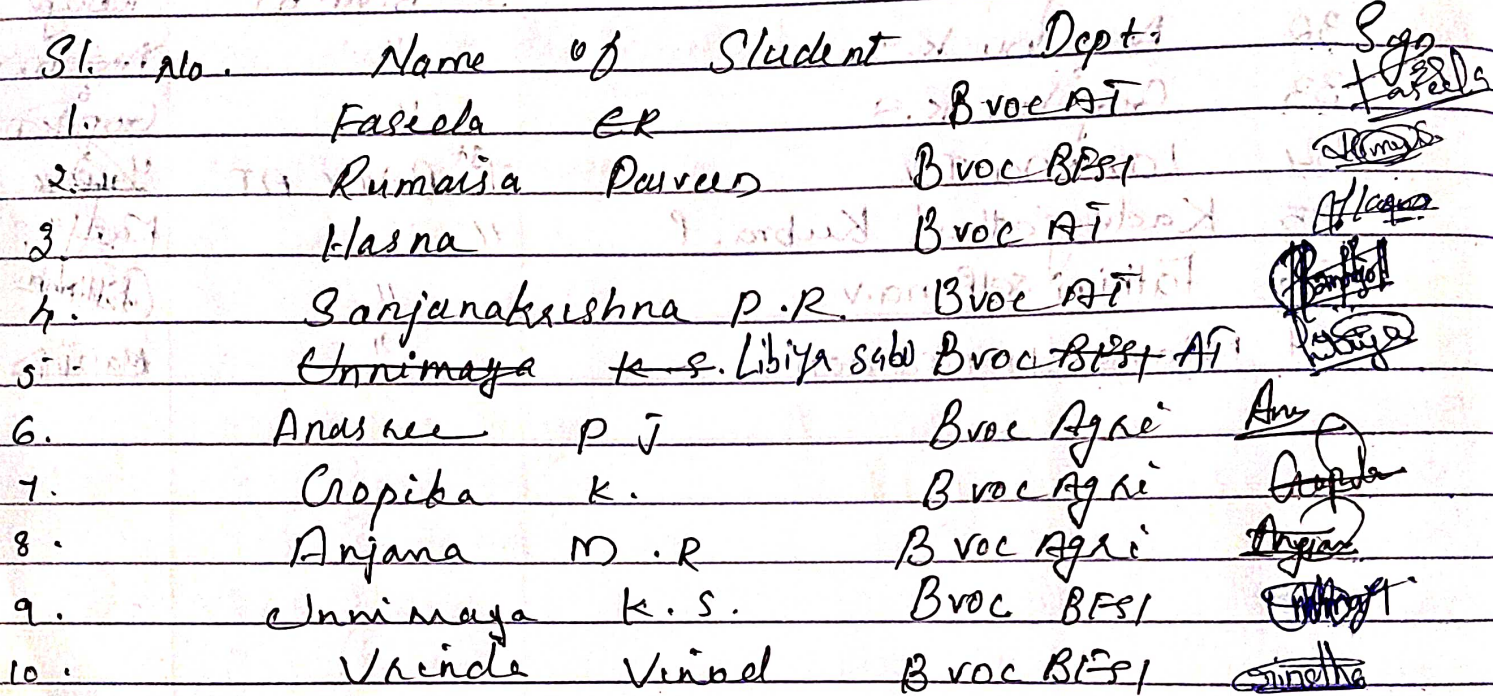 Sl. No. Name of Student Dept. Sign
1. Faseela ER Bvoc AI Faseela
2. Rumaisa Parveen Bvoc BFSI
3. Hasna Bvoc AI
4. Sanjanakrishna P.R. Bvoc AI
5. Unnimaya K.S. Libiya sabu Bvoc BFSI AI Libiya
6. Anasree P J Bvoc Agri Anu
7. Gopika K. Bvoc Agri Gopika
8. Anjana M.R Bvoc Agri Anjana
9. Unnimaya K.S. Bvoc BFSI
10. Vrinda Vinod Bvoc BFSI